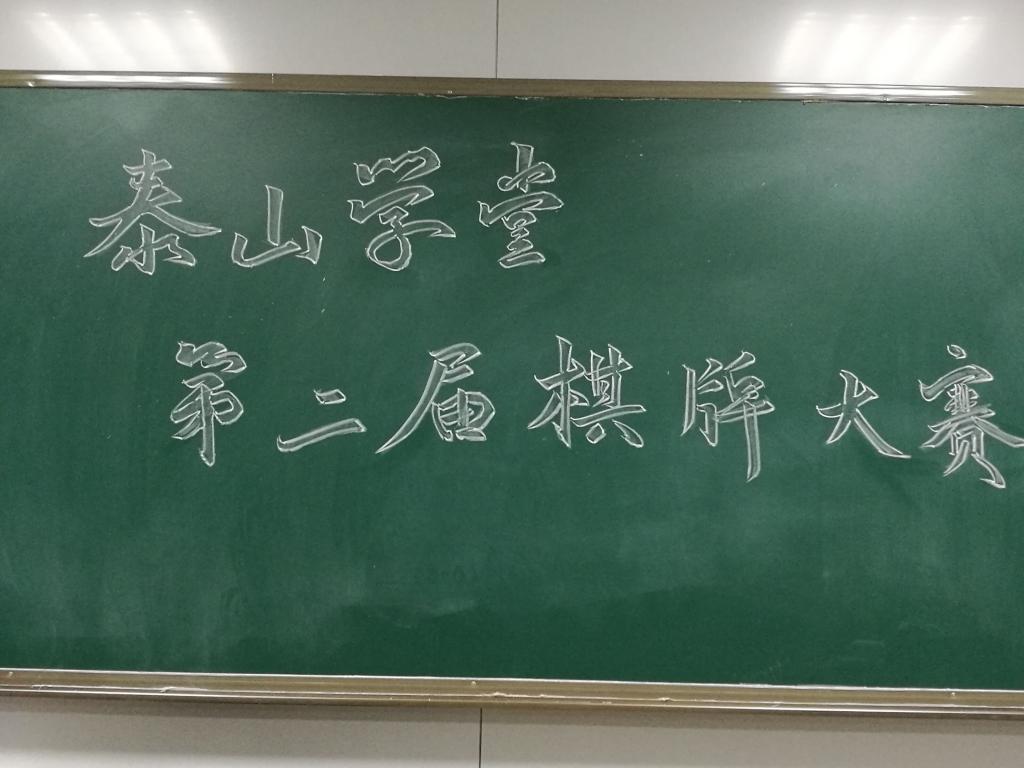 泰山学堂
第二届棋牌大赛